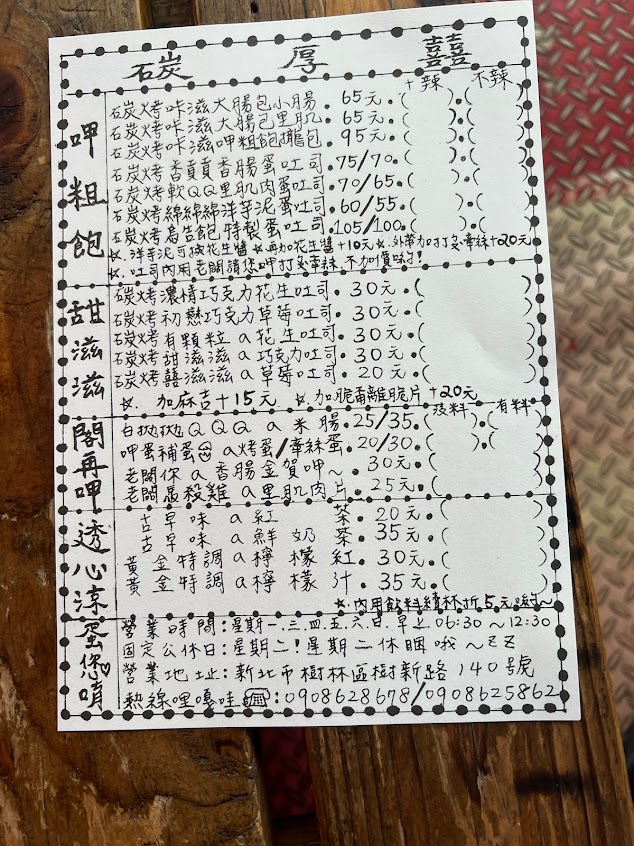 碳厚囍
＋辣 不辣
呷粗飽
碳烤咔滋大腸包小腸.65元.( ).( )
碳烤咔滋大腸包里肌.65元.( ).( )
碳烤咔滋呷粗飽攏包.95元.( ).( )
碳烤香貢貢香腸蛋吐司.75/70.( ).( )
碳烤軟QQ里肌肉蛋吐司.70/65.( ).( )
碳烤綿綿綿洋芋泥蛋吐司.60/55.( ).( )
碳烤為告飽特製蛋吐司.105/100.( ).( )
☆.洋芋泥可換花生醬 ☆再加花生醬+10元☆.外帶加打包牽絲+20元
☆.吐司內用老闆請您呷打包牽絲,不加價喲!
甜滋滋
碳烤濃情巧克力花生吐司.30元.( )
碳烤初戀巧克力草莓吐司.30元.( )
碳烤有顆粒a花生吐司.30元.( )
碳烤甜滋滋a巧克力吐司.30元.( )
碳烤囍滋滋a草莓吐司.20元.( )
☆.加麻吉+15元 ☆.加脆甭離脆片+20元
沒料 有料
閣再呷
白拋拋QQQa米腸.25/35.( ).( )
呷蛋補蛋a烤蛋/牽絲蛋.20/30.( ).( )
老闆你a香腸金賀呷~.30元.( )
老闆愛殺雞a里肌肉片.25元.( )
透心涼
古早味a紅茶.20元.( )
古早味a鮮奶茶.35元.( )
黃金特調a檸檬紅.30元.( )
黃金特調a檸檬汁.35元.( )
☆.內用飲料續杯折5元喲~
蛋您唷
營業時間:星期一.三.四.五.六.日.早上06:30~12:30
固定公休日:星期二!星期二休睏哦~ZZ
營業地址:新北市樹林區樹新路140號
熱線哩嘎哇☎:0908628678/0908625862